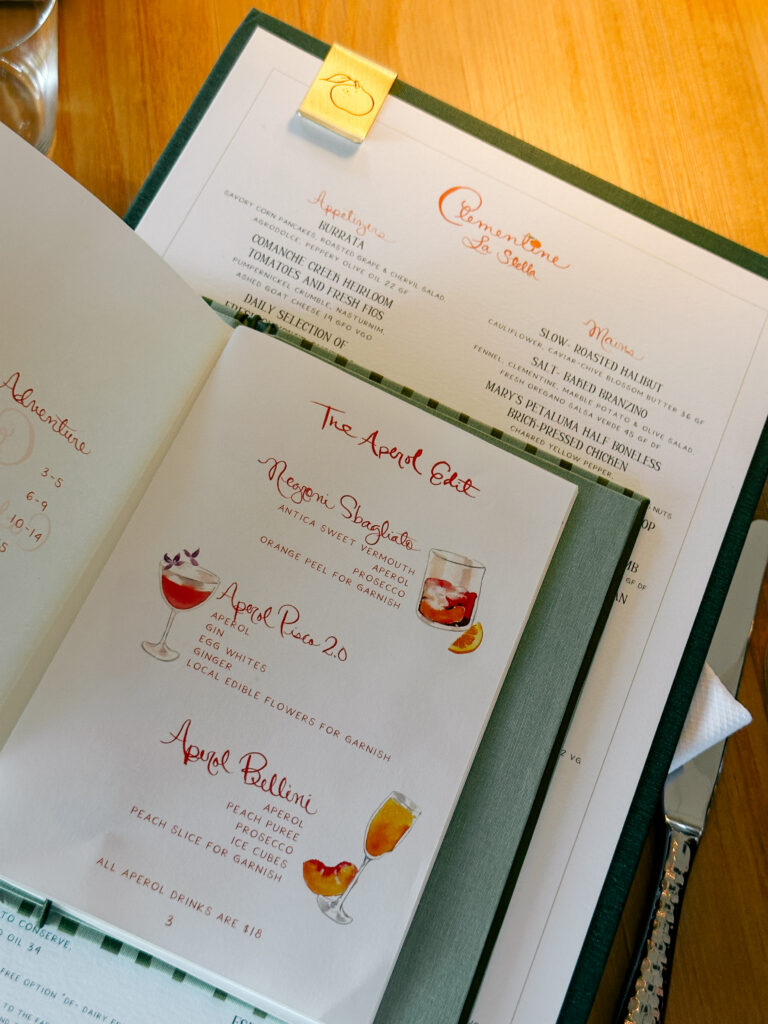 Clementine
La Stella
Appetizers
BURRATA
SAVORY CORN PANCAKES, ROASTED GRAPE & CHERVIL SALAD,
AGRODOLCE, PEPPERY OLIVE OIL 22 GF
COMANCHE CREEK HEIRLOOM
TOMATOES AND FRESH FIGS
PUMPERNICKEL CRUMBLE, NASTURNIM,
ASHED GOAT CHEESE 19 GFO VGO
DAILY SELECTION OF
Mains
SLOW- ROASTED HALIBUT
CAULIFLOWER, CAVIAR-CHIVE BLOSSOM BUTTER 36 GF
SALT- BAKED BRANZINO
FENNEL, CLEMENTINE, MARBLE POTATO & OLIVE SALAD,
FRESH OREGANO SALSA VERDE 45 GF DF
MARY'S PETALUMA HALF BONELESS
BRICK-PRESSED CHICKEN
CHARRED YELLOW PEPPER,
NUTS
OP
MB
GF DF
AN
2 VG
Adventure
3-5
6-9
10-14
The Aperol Edit
Negroni Sbagliato
ANTICA SWEET VERMOUTH
APEROL
PROSECCO
ORANGE PEEL FOR GARNISH
Aperol Pisco 2.0
APEROL
GIN
EGG WHITES
GINGER
LOCAL EDIBLE FLOWERS FOR GARNISH
Aperol Bellini
APEROL
PEACH PUREE
PROSECCO
ICE CUBES
PEACH SLICE FOR GARNISH
ALL APEROL DRINKS ARE $18
3
TO CONSERVE,
OIL 34
FREE OPTION *DF- DAIRY
TO THE